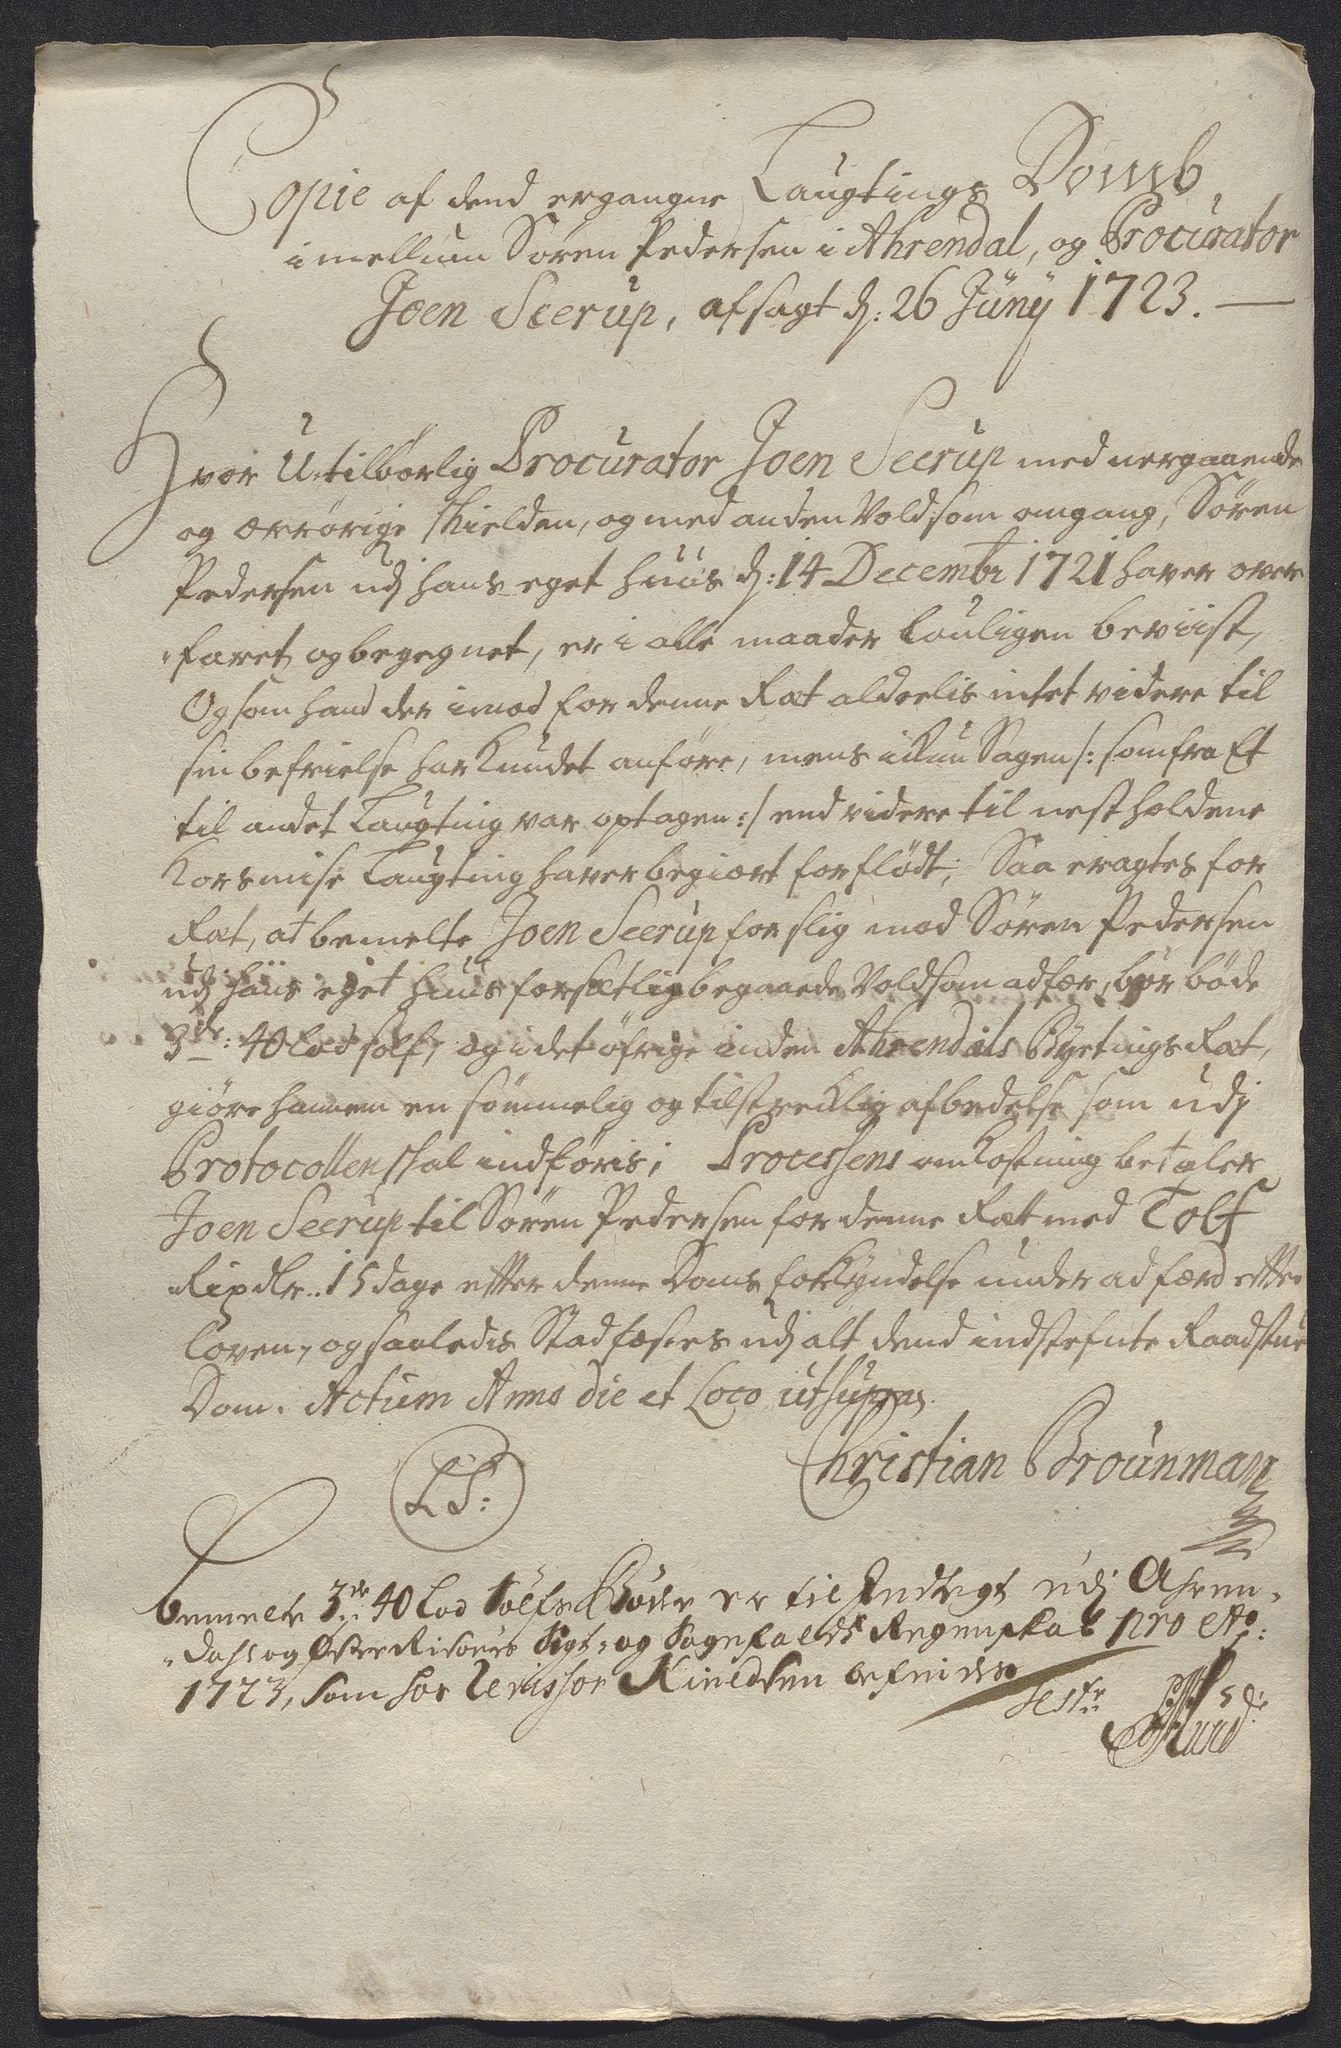 Copie af dend ergangne Laugtings Domb
imellum Søren Pedersen i Ahrendal, og Procurator
Joen Seerup, afsagt d: 26 Junÿ 1723. —
Hvor Utilbørlig Procurator Joen Seerup med nergaaende
og ærrørige skielden, og med anden Voldsom omgang, Søren
Pedersen udj hans eget huus d: 14 Decembr 1721 haver over
faret og begegnet, er i alle maader louligen beviist,
Og som hand der imod for denne Ræt aldeelis intet videre til
sin befrielse har kundet anføre, mens ickun Sagen /: som fra Et
til andet Laugting var optagen :/ end videre til nest holdene
Korsmise Laugting haver begiært forflødt; Saa eragtes for
Ræt, at bemelte Joen Seerup for slig mod Søren Pedersen
udj hans eget huus forsætlig begaaede Voldsom adfær, bør bøde
3de: 40 Lod sølf, og i det øfrige inden Ahrendals Byetings Ræt,
giøre hannem en sømmelig og tilstrecklig afbedelse som udj
Protocollen skal indføris; Processens omkostning betaler
Joen Seerup til Søren Pedersen for denne Ræt med Tolf
Rixdlr. 15 dage efter denne Doms forkyndelse under adfærd efter
loven, og saaledis Stadfæstes udj alt dend indstefnte Raadstue
Dom. Actum Anno die et Loco ut supra.
Christian Brounman
LS:
bemelte 3de 40 Lod Sølfs Bøder er til Indtegt udj Ahren-
dahl og Øster Risøers Sigt- og Sagefalds Regenskab pro Ao:
1723, som hos Cerissor Knudsen befindes
Test